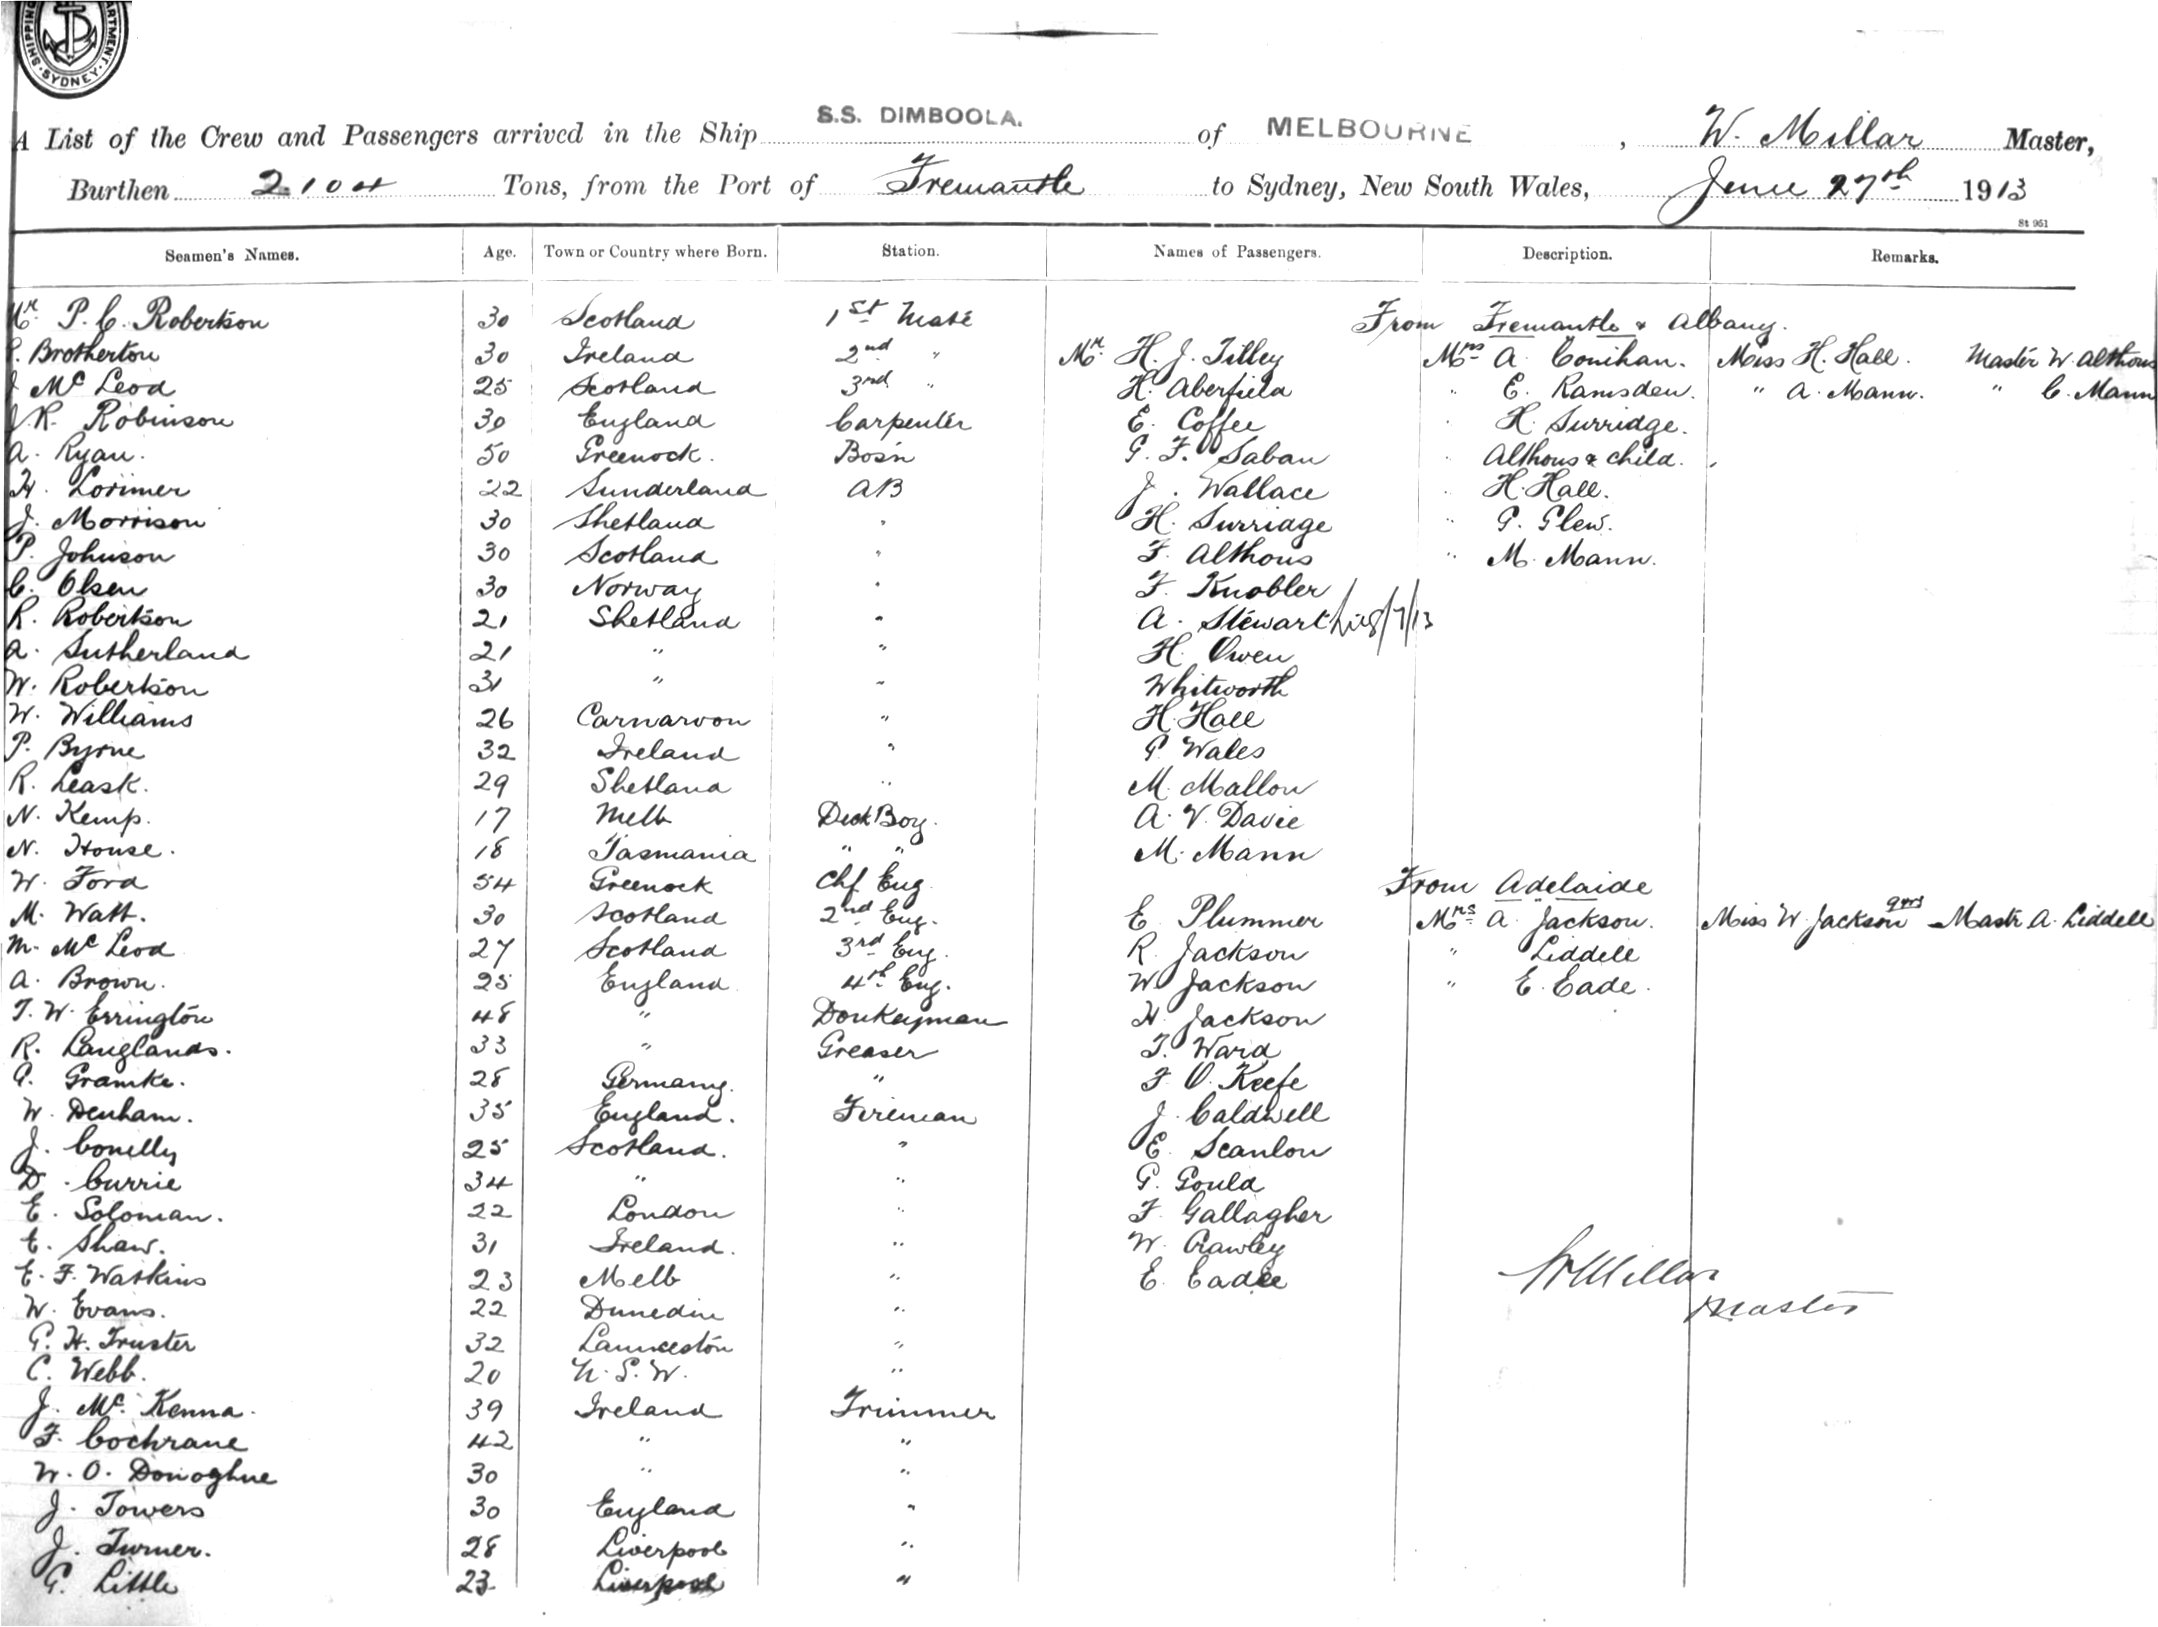 SHIPPING DEPARTMENT. SYDNEY
A List of the Crew and Passengers arrived in the Ship S.S. DIMBOOLA. of MELBOURNE, W. Millar Master,
Burthen 2104 Tons, from the Port of Fremantle to Sydney, New South Wales, June 27th 1913
St 951
Seamen's Names. Age. Town or Country where Born. Station. Names of Passengers. Description. Remarks.
Mr. P. C. Robertson 30 Scotland 1st Mate From Fremantle & Albany.
Brotherton 30 Ireland 2nd " Mr. H. J. Tilley Mrs A Conihan. Miss H. Hall. Master W. Althous
J Mc Leod 25 Scotland 3rd " H. Aberfield " E. Ramsden. " A. Mann. " C. Mann
J. R. Robinson 30 England Carpenter E. Coffee " H. Surridge.
A. Ryan. 50 Greenock. Bosn G. F. Saban " Althous & child.
H. Lorimer 22 Sunderland AB J. Wallace " H. Hall.
J. Morrison 30 Shetland " H. Surridge " G. Glew.
P. Johnson 30 Scotland " F. Althous " M. Mann.
C. Olsen 30 Norway " F. Knobler
R. Robertson 21 Shetland " A. Stewart /7/13
A. Sutherland 21 " " H. Owen
W. Robertson 31 " " Whitworth
W. Williams 26 Carnarvon " H. Hall
P. Byrne 32 Ireland " G. Wales
R. Leask. 29 Shetland " M. Mallon
N. Kemp. 17 Melb Deck Boy. A. V. Davie
N. House. 18 Tasmania " " M. Mann
W. Ford 54 Greenock Chf Eng From Adelaide
M. Watt. 30 Scotland 2nd Eng. E Plummer Mrs A. Jackson. Miss W. Jackson 9yrs Mastr A. Liddell
M. Mc Leod 27 Scotland 3rd Eng. R. Jackson " Liddell
A. Brown. 25 England 4th Eng. W Jackson " E. Eade.
T. W. Errington 48 " Donkeyman H. Jackson
R. Langlands. 33 " Greaser T. Ward
G. Gramke. 28 Germany. " F. O. Keefe
W. Denham. 35 England. Fireman J. Caldwell
J. Conelly 25 Scotland. " E. Scanlon
D. Currie 34 " " G. Gould
E. Soloman. 22 London " F. Gallagher
E. Shaw. 31 Ireland. " W. Crawley
E. F. Watkins 23 Melb " E. Eadie
W Millar
W. Evans. 22 Dunedin " Master
G. H. Truster 32 Launceston "
C. Webb. 20 N. S. W. "
J. Mc. Kenna. 39 Ireland Trimmer
F. Cochrane 42 " "
W. O. Donoghue 30 " "
J. Towers 30 England "
J. Turner. 28 Liverpool "
G. Little 23 Liverpool "